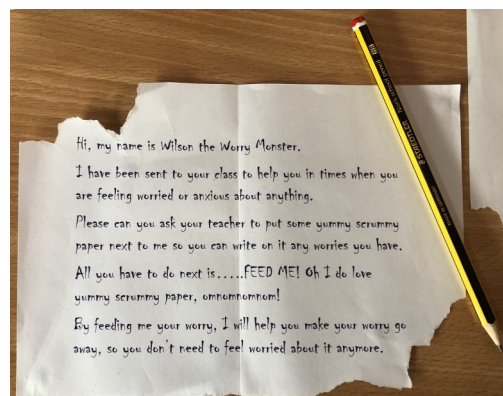 Hi, my name is Wilson the Worry Monster.
I have been sent to your class to help you in times when you
are feeling worried or anxious about anything.
Please can you ask your teacher to put some yummy scrummy
paper next to me so you can write on it any worries you have.
All you have to do next is.....FEED ME! Oh I do love
yummy scrummy paper, omnomnomnom!
By feeding me your worry, I will help you make your worry go
away, so you don't need to feel worried about it anymore.
STAEDTLER